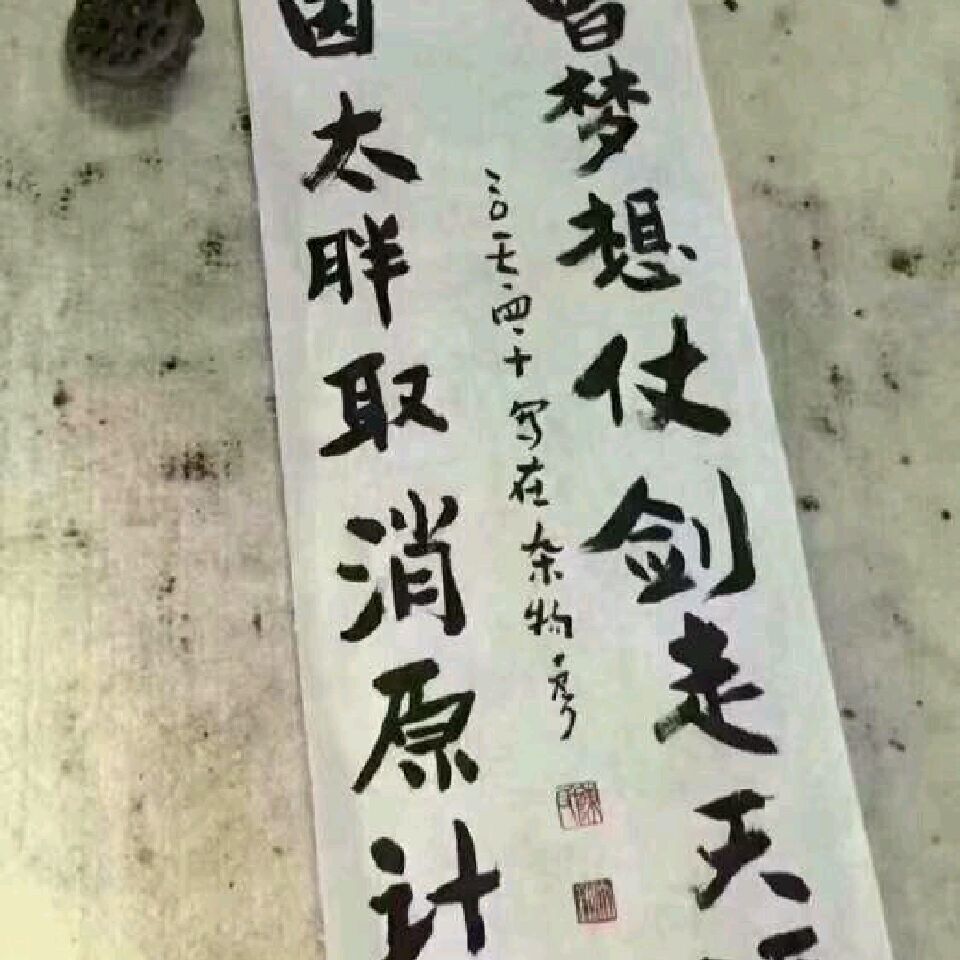 曾梦想仗剑走天
因太胖取消原计
二〇一七·四·十写在杂物